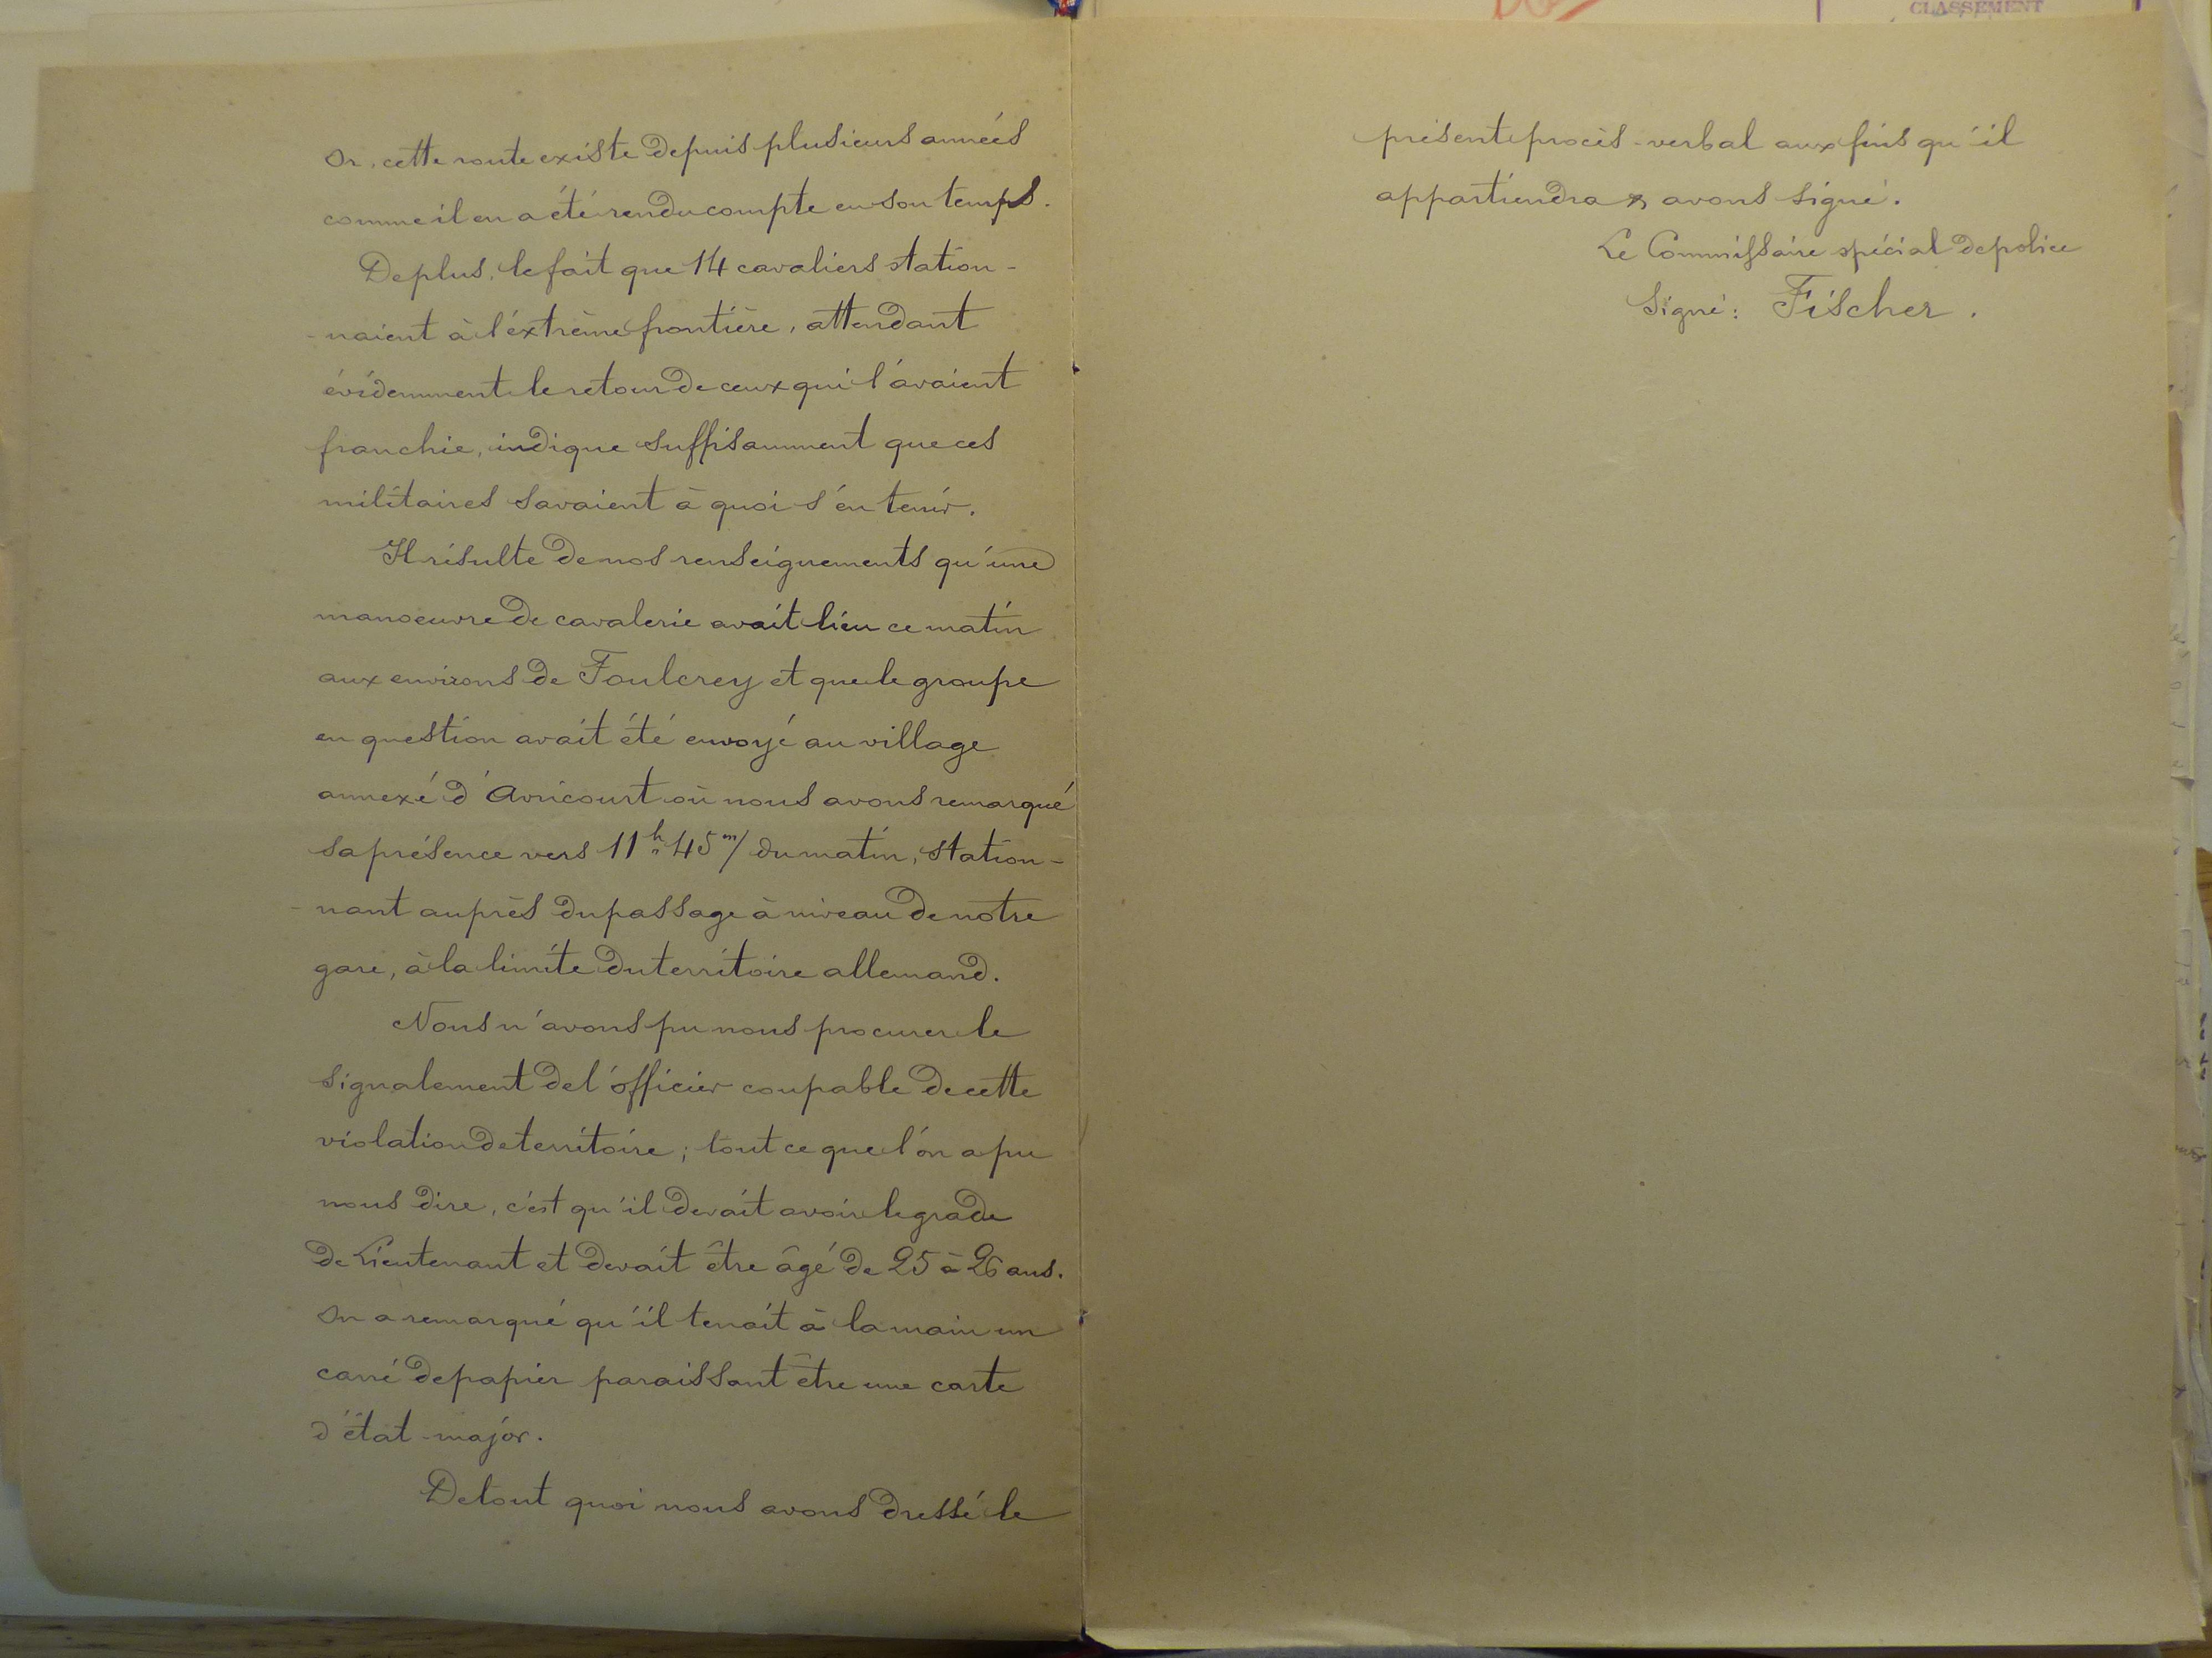 Or, cette route existe depuis plusieurs années
comme il en a été rendu compte en son temps.
De plus, le fait que 14 cavaliers station-
-naient à l'éxtrême frontière, attendant
évidemment le retour de ceux qui l'avaient
franchie, indique suffisamment que ces
militaires savaient à quoi s'en tenir.
Il résulte de nos renseignements qu'une
manoeuvre de cavalerie avait lieu ce matin
aux environs de Foulcrey et que le groupe
en question avait été envoyé au village
annexé d'Avricourt où nous avons remarqué
sa présence vers 11h 45m/ du matin, station-
-nant auprès du passage à niveau de notre
gare, à la limite du territoire allemand.
Nous n'avons pu nous procurer le
signalement de l'officier coupable de cette
violation de territoire; tout ce que l'on a pu
nous dire, c'est qu'il devait avoir le grade
de Lieutenant et devait être âgé de 25 à 26 ans.
On a remarqué qu'il tenait à la main un
carré de papier paraissant être une carte
d'état-major.
De tout quoi nous avons dressé le
présent procès-verbal aux fins qu'il
appartiendra & avons signé.
Le Commissaire spécial de police
Signé: Fischer.
CLASSEMENT